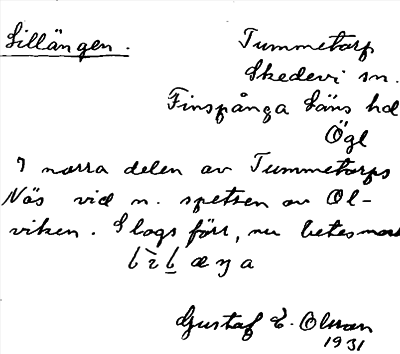 Lillängen.
Tummetorp
Skedevi sn.
Finspånga läns hd
Ögl
I norra delen av Tummetorps
Näs vid n. spetsen av Ol-
viken. Slogs förr, nu betesmark
Gustaf E. Olsson
1931